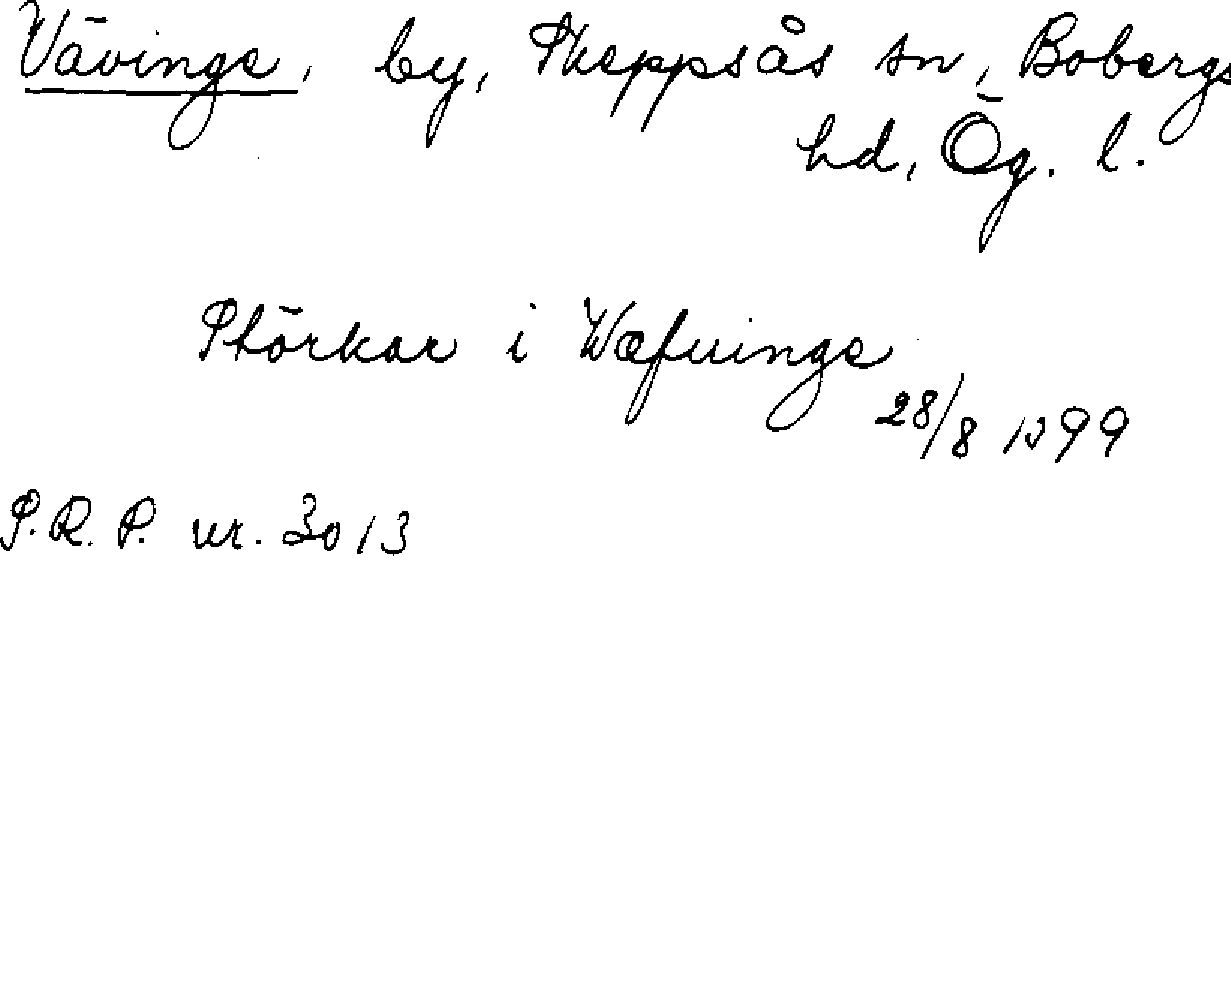 Vävinge, by, Skeppsås sn, Bobergs
hd, Ög. l.
Störkar i Wæfuinge
28/8 1399
S.R.P. nr. 3013